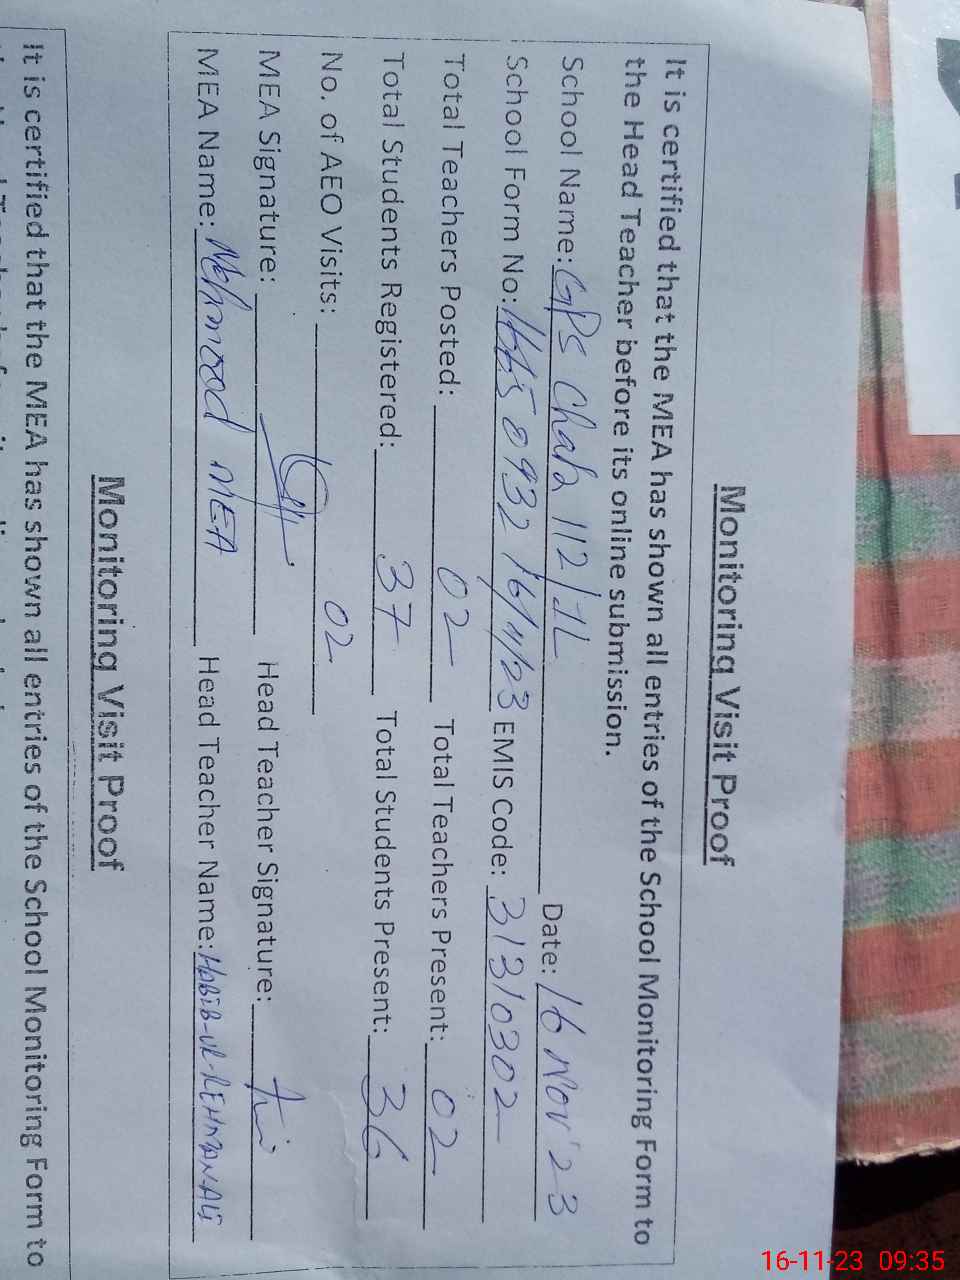 Monitoring Visit Proof
It is certified that the MEA has shown all entries of the School Monitoring Form to
the Head Teacher before its online submission.
School Name: GPS Chak 112/1L Date: 16 Nov'23
School Form No: 8932 16/11/23 EMIS Code: 31310302
Total Teachers Posted: 02 Total Teachers Present: 02
Total Students Registered: 37 Total Students Present: 36
No. of AEO Visits: 02
MEA Signature: Head Teacher Signature:
MEA Name: Mehmood MEA Head Teacher Name: HABIB-UR-REHMAN ALI
Monitoring Visit Proof
It is certified that the MEA has shown all entries of the School Monitoring Form to
16-11-23 09:35